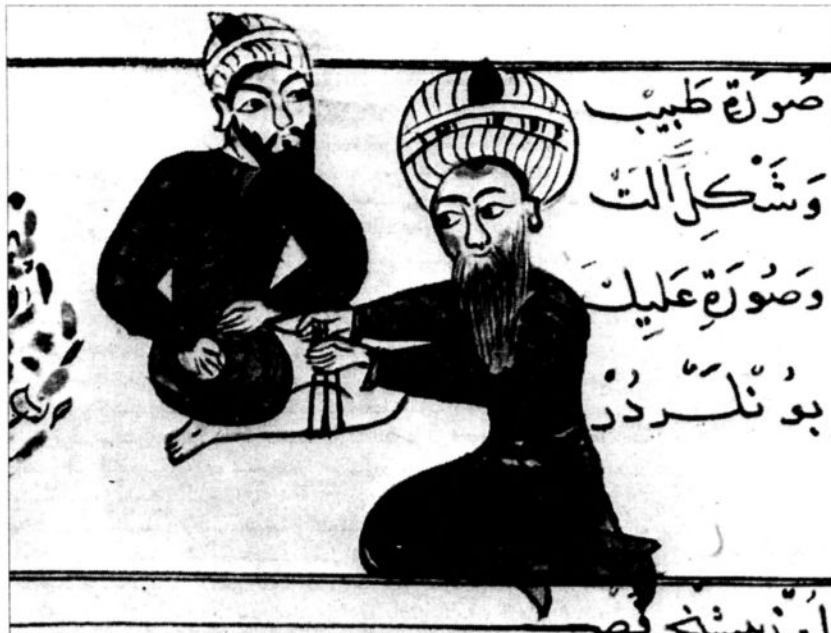 صُورَةِ طَبِيبْ
وَشَكْلِ اٰلَتْ
وَصُورَةِ عَلِيلْ
بُو نْلَرْدُرْ